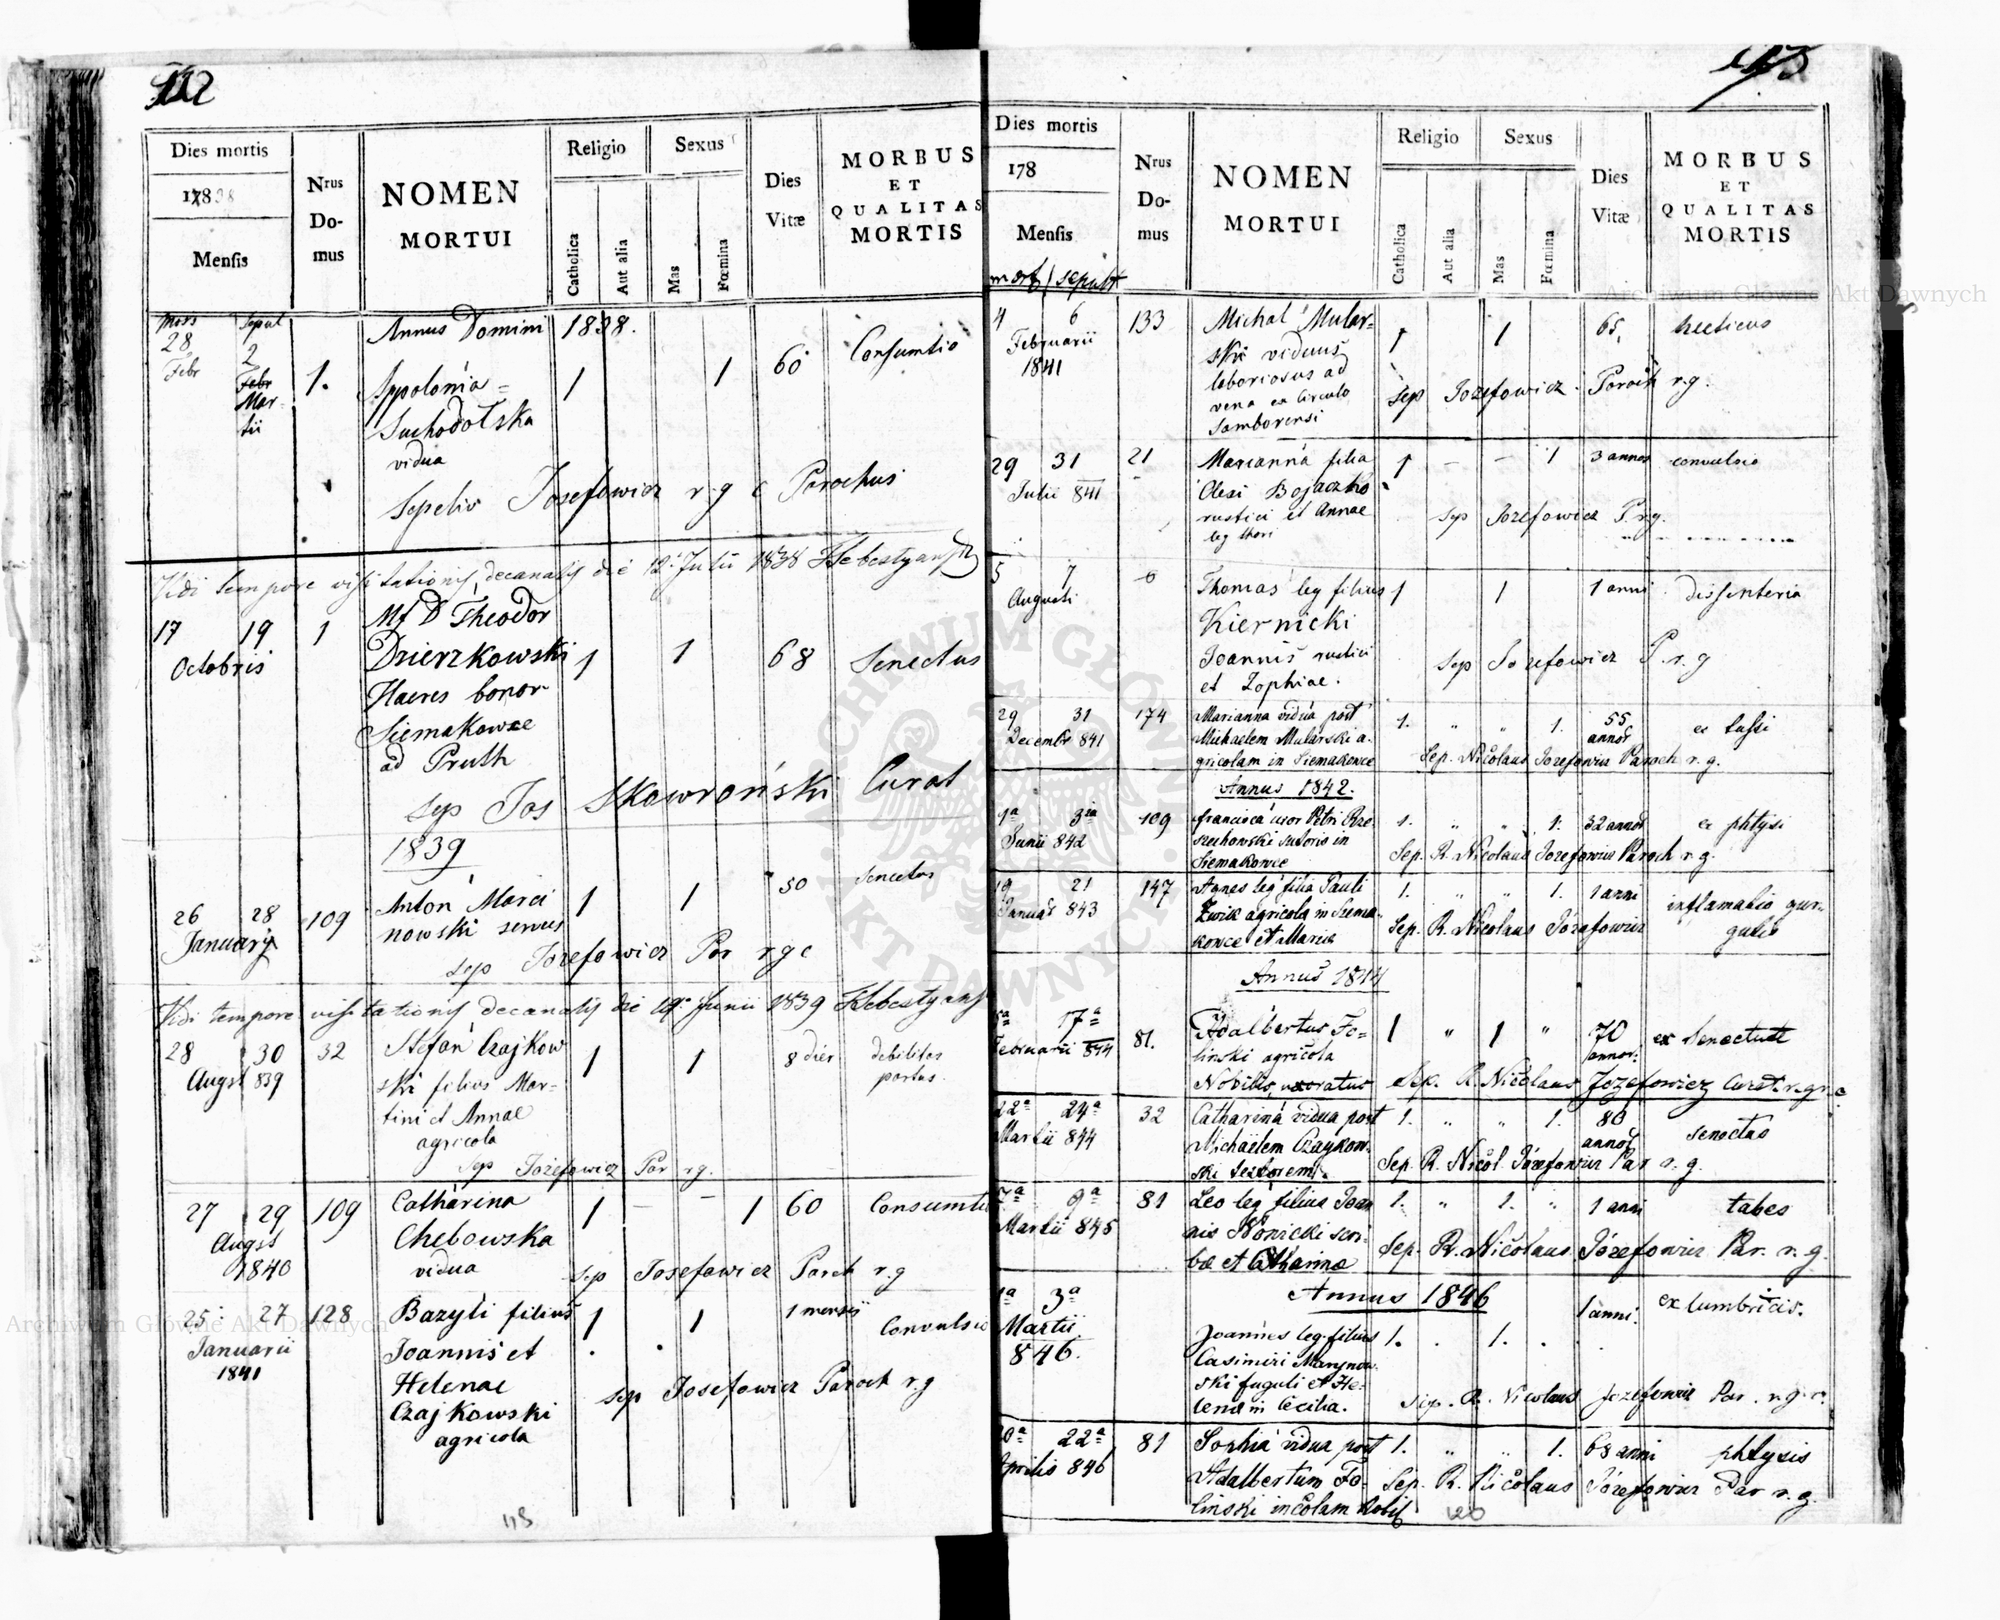 112
Dies mortis
1838
Mensis
Nrus Domus
NOMEN MORTUI
Religio
Catholica
Aut alia
Sexus
Mas
Fœmina
Dies Vitæ
MORBUS ET QUALITAS MORTIS
mors sepul
Annus Domini 1838.
28 Febr 2 Febr Martii 1. Appolonia 1 1 60 Consumtio
Suchodolska
vidua
Sepeliv Josefowicz r. g c Parochus
Vidi tempore visitationis decanalis die 12 Julii 1838
17 19 1 Mf D Theodor
Octobris Dzierzkowski 1 1 68 Senectus
Haeres bonor
Siemakowce
ad Pruth
sep Jos Skowroński Curat
1839
26 28 109 Anton Marci 1 1 50 Senectus
January nowski servus
sep Jozefowicz Par r g c
Vidi tempore visitationis decanalis die 19 Junii 1839
28 30 32 Stefan Czajkow 1 1 8 dier debilitas
Augst 839 ski filius Mar= partus
tini et Annae
agricola
sep Jozefowicz Par r g.
27 29 109 Catharina 1 — – 1 60 Consumtio
Augst Chebowska
1840 vidua sep Josefowicz Paroch r. g
25 27 128 Bazyli filius 1 1 1 mensis Convulsio
Januarii Joannis et
1841 Helenae sep Josefowicz Paroch r. g
Czajkowski
agricola
118
Dies mortis
178
Mensis
Nrus Domus
NOMEN MORTUI
Religio
Catholica
Aut alia
Sexus
Mas
Fœmina
Dies Vitæ
MORBUS ET QUALITAS MORTIS
mort / sepult
4 6 133 Michal Mular= 1 1 65, hecticus
Februarii ski viduus
1841 laboriosus ad sep Jozefowicz Paroch r. g.
vena ex Circulo
Samborensi
29 31 21 Marianna filia 1 – – 1 3 annos convulsio
Julii 841 Olexi Bojaczko
rustici et Annae sep Jozefowicz P. r g.
leg thori
5 7 Thomas leg filius 1 1 1 anni dissenteria
Augusti Kiernicki
Joannis rustici sep Jozefowicz P. r. g
et Zophiae.
29 31 174 Marianna vidua post 1. " " 1. 55 annor ex tussi
Decembr 841 Michaelem Mularski a-
gricolam in Siemakowce Sep. Nicolaus Jozefowicz Paroch r. g.
Annus 1842.
1a 3ia 109 francisca uxor Petri Rze 1. " " 1. 32 annor ex phtysi
Junii 842 szechowski sutoris in
Siemakowce Sep. R. Nicolaus Jozefowicz Paroch r. g.
19 21 147 Agnes leg filia Pauli 1. " " 1. 1 anni inflamatio gur-
Januar 843 agricola in Siema- gulis
kowce et Maria Sep. R. Nicolaus Józefowicz
Annus 1844
17a 81. Adalbertus Fo- 1 " 1 " 70 annor: ex Senectute
Februarii 844 linski agricola
Nobilis, uxoratus Sep. R. Nicolaus Jozefowicz Curat. r. gr. c
22a 24a 32 Catharina vidua post 1. " " 1. 80 annor senectus
Martii 844 Michaëlem Czaykow-
ski textorem. Sep. R. Nicol. Józefowicz Par r. g.
7a 9a 81 Leo leg filius Joan 1. " 1. " 1 anni tabes
Martii 845 nis Nowicki scri-
bæ et Catharinæ Sep. R. Nicolaus Józefowicz Par. r. g.
Annus 1846
1a 3a Joannes leg. filius 1. . 1. . 1 anni. ex lumbricis.
Martii Casimiri Marynow
846. ski fuguli et He-
lenæ in Cecilia. Sep. R. Nicolaus Jozefowicz Par r. g. c.
20a 22a 81 Sophia vidua post 1. " " 1. 68 anni phtysis
Aprilis 846 Adalbertum Fo- Sep. R. Nicolaus Józefowicz Par r. g.
linski incolam Nobil
120
Archiwum Główne Akt Dawnych
Archiwum Główne Akt Dawnych
ARCHIWUM GŁÓWNE AKT DAWNYCH